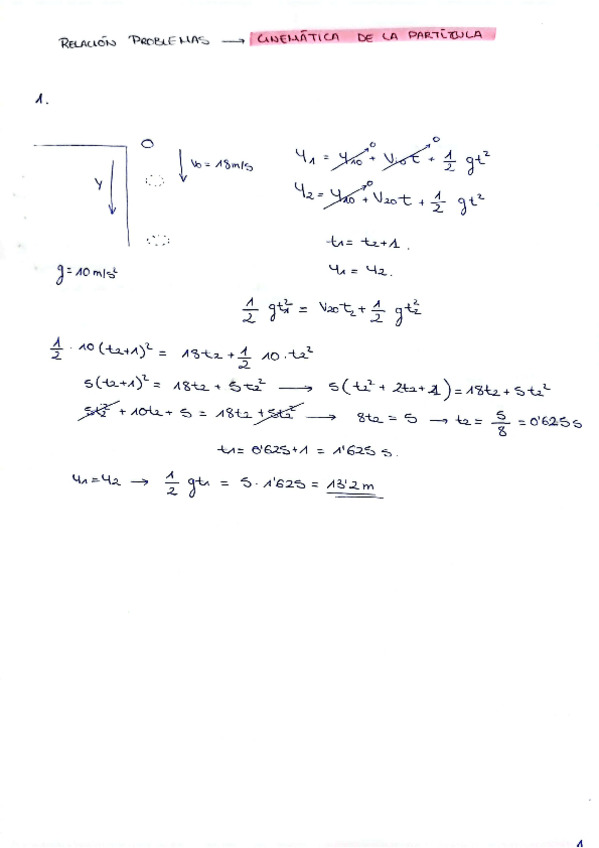 RELACIÓN PROBLEMAS → CINEMÁTICA DE LA PARTÍCULA
1.
y
v0 = 18m/s
g = 10 m/s²
y1 = y10 + v10t + 1/2 gt²
0
0
y2 = y20 + v20t + 1/2 gt²
0
t1 = t2+1.
y1 = y2.
1/2 gt1² = v20t2 + 1/2 gt2²
1/2 · 10(t2+1)² = 18t2 + 1/2 10·t2²
5(t2+1)² = 18t2 + 5t2² → 5(t2² + 2t2+1) = 18t2 + 5t2²
5t2² + 10t2 + 5 = 18t2 + 5t2² → 8t2 = 5 → t2 = 5/8 = 0'625 s
t1 = 0'625+1 = 1'625 s.
y1=y2 → 1/2 gt1 = 5·1'625 = 13'2 m
1